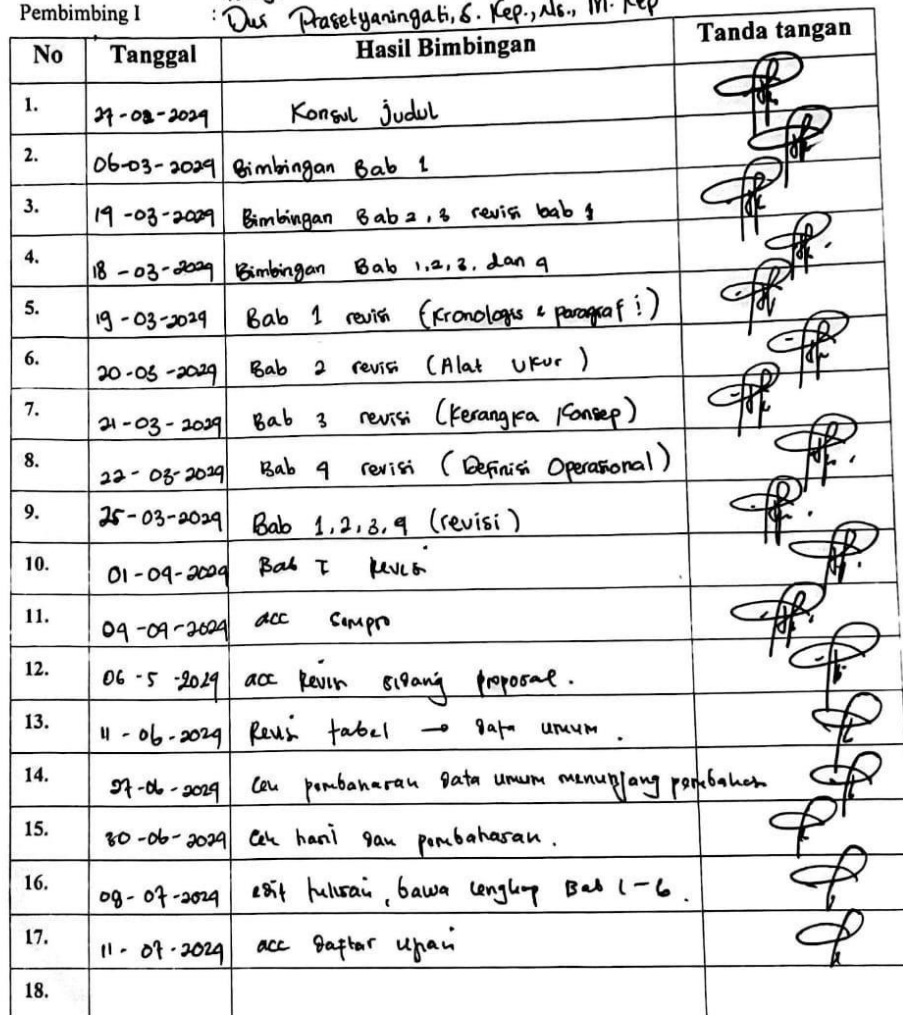 Pembimbing I : Dwi Prasetyaningati, S. Kep., Ns., M. Kep
No Tanggal Hasil Bimbingan Tanda tangan
1. 27-02-2024 Konsul judul
2. 06-03-2024 Bimbingan Bab 1
3. 14-03-2024 Bimbingan Bab 2, 3 revisi bab 1
4. 18-03-2024 Bimbingan Bab 1,2,3, dan 4
5. 19-03-2024 Bab 1 revisi (Kronologis & paragraf :)
6. 20-03-2024 Bab 2 revisi (Alat Ukur)
7. 21-03-2024 Bab 3 revisi (Kerangka Konsep)
8. 22-03-2024 Bab 4 revisi (Definisi Operasional)
9. 25-03-2024 Bab 1,2,3,4 (revisi)
10. 01-04-2024 Bab I Revisi
11. 04-04-2024 acc Sempro
12. 06-5-2024 acc Revisi sidang proposal.
13. 11-06-2024 Revisi tabel → data umum.
14. 27-06-2024 Cek pembahasan data umum menunjang pembahas
15. 30-06-2024 Cek hasil dan pembahasan.
16. 08-07-2024 edit tulisan, bawa lengkap Bab 1-6.
17. 11-07-2024 acc daftar ujian
18.